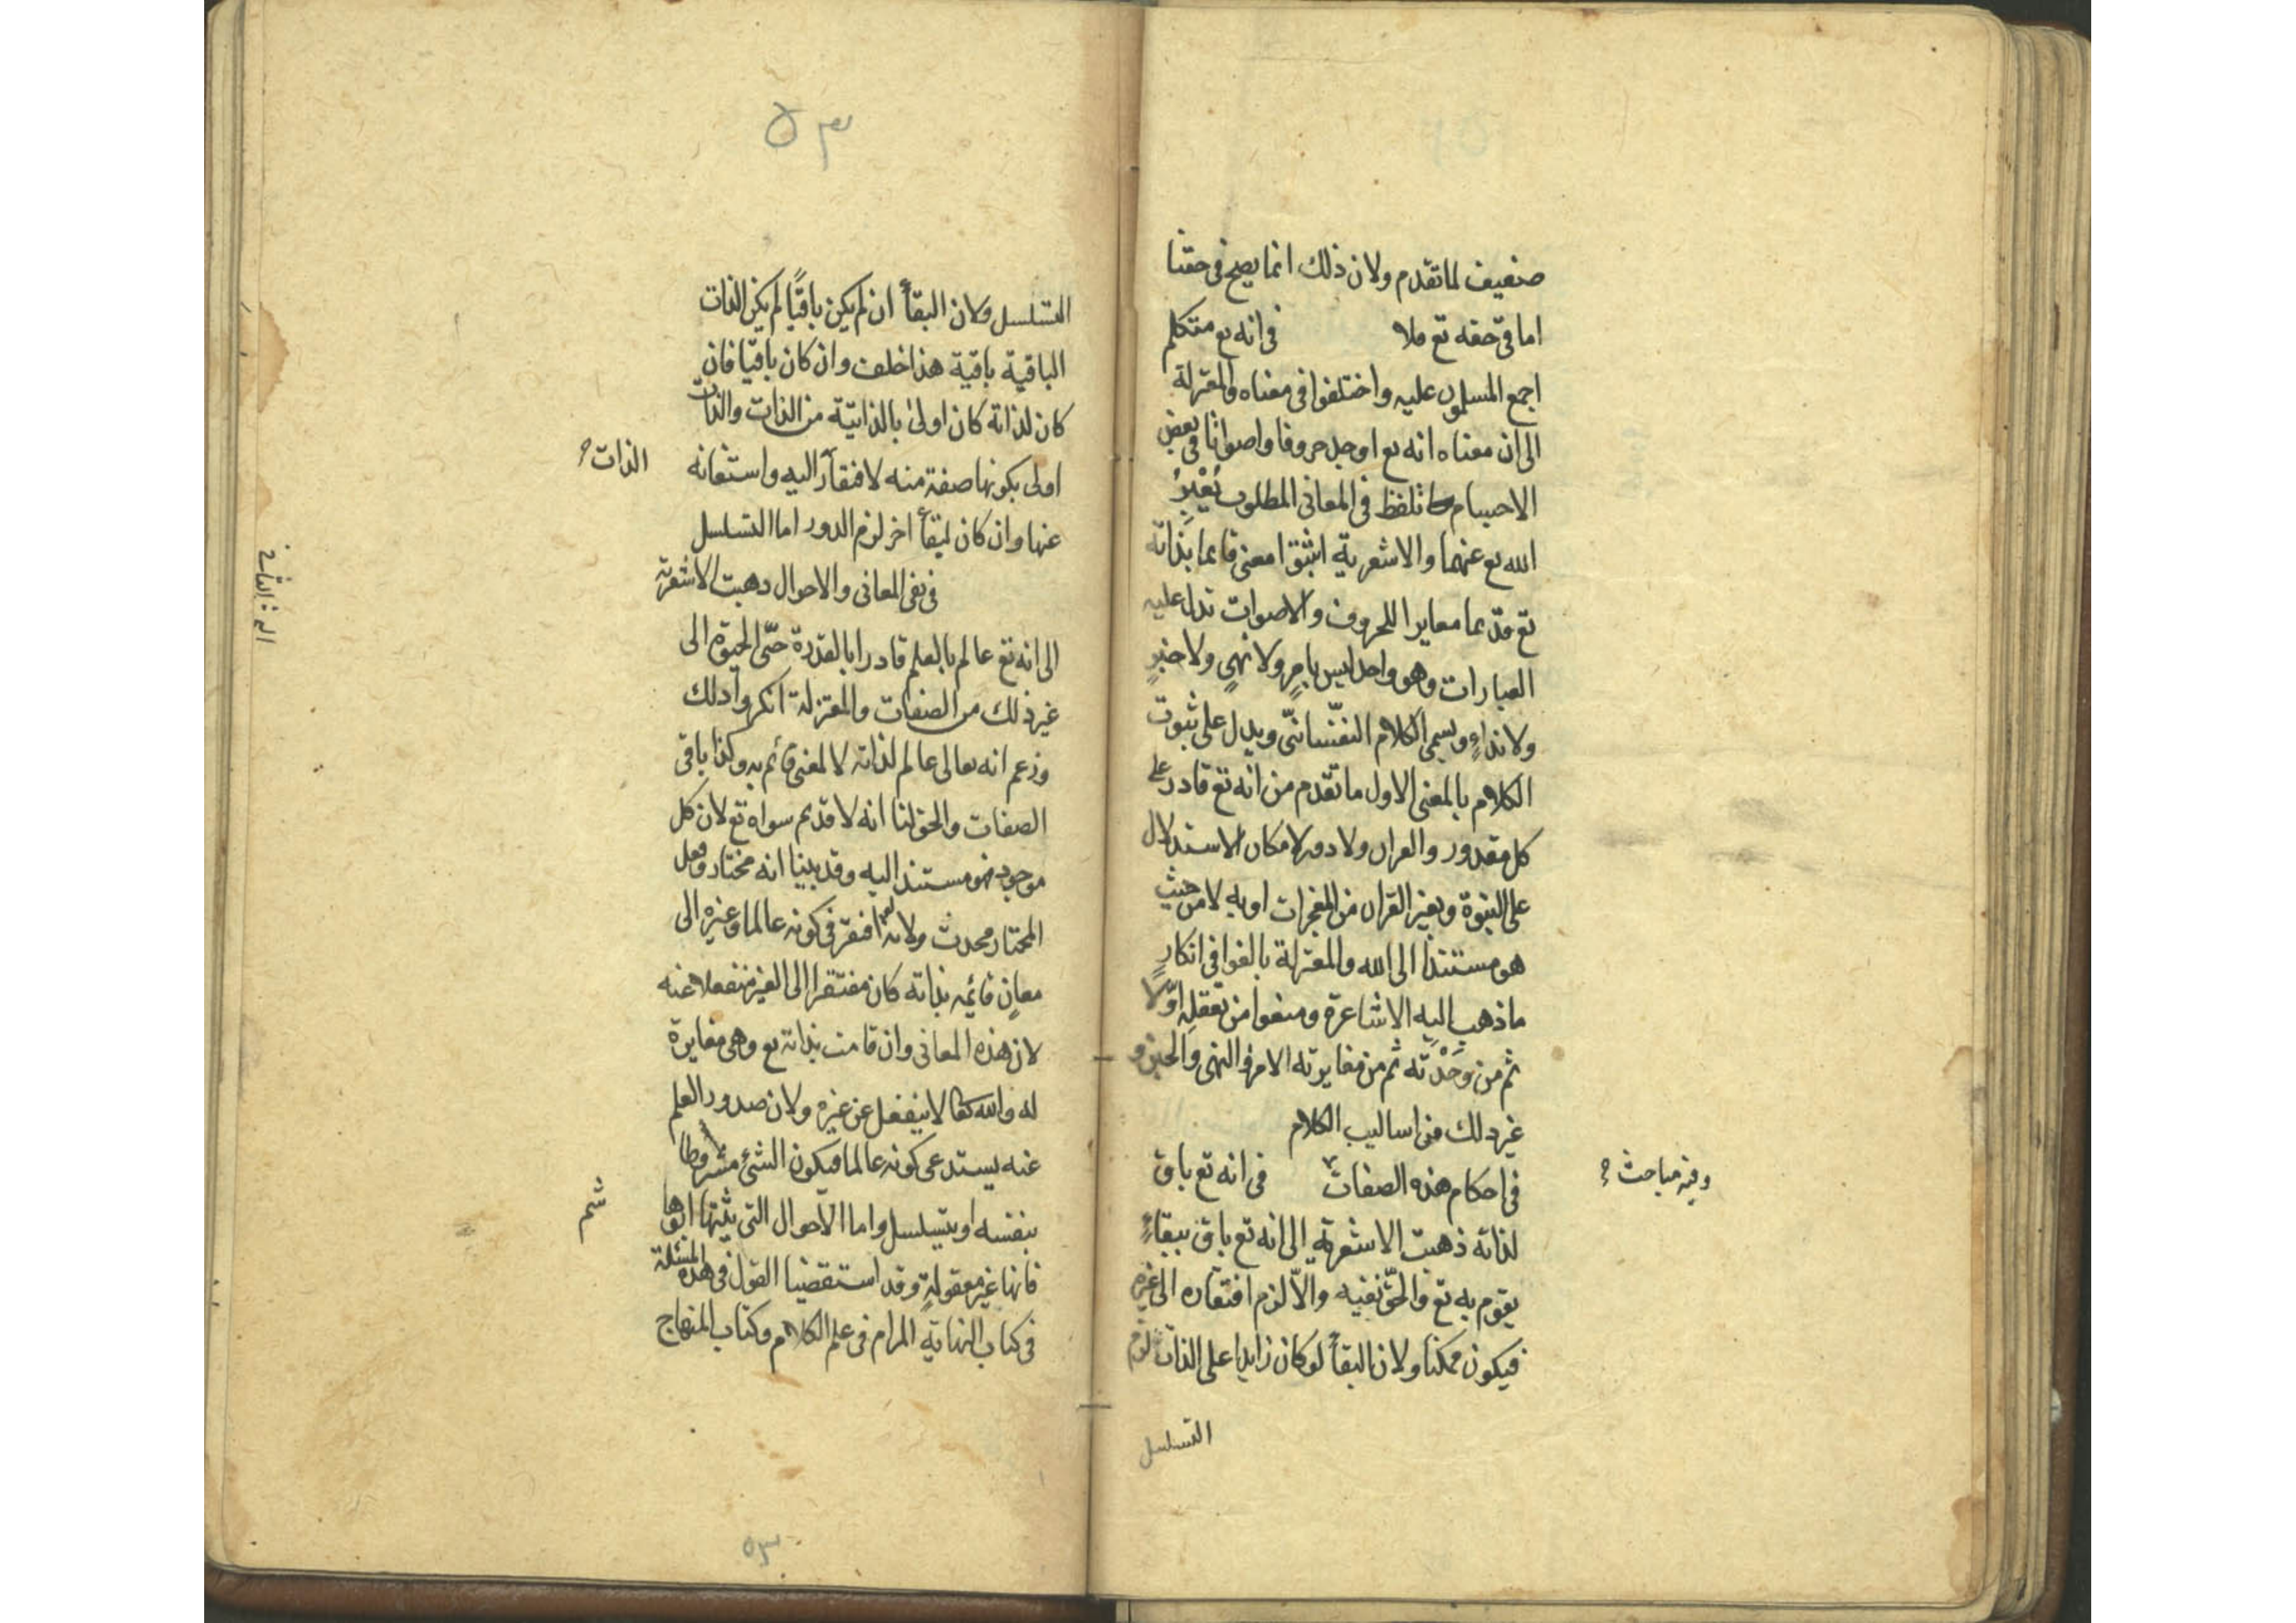 ضعيف لما تقدم ولان ذلك انما يصح فى حقنا
اما فى حقه تع فلا فى انه تع متكلم
اجمع المسلمون عليه واختلفوا فى معناه والمعتزلة
الى ان معناه انه تع اوجد حروفا واصواتا فى بعض
الاجسام تلفظ فى المعانى المطلوب يُعْبِرُ
الله تع عنهما والاشعرية اثبتوا معنى قايما بذاته
تع قديما مغايرا للحروف والاصوات تدل عليه
العبارات وهو واحد ليس بامرٍ ولا نهىٍ ولا خبرٍ
ولا نداءٍ ويسمى الكلام النفسانىّ ويدل على ثبوت
الكلام بالمعنى الاول ما تقدم من انه تع قادر على
كل مقدور والقران ولا دور لامكان الاستدلال
على النبوة وبغير القران من المعجزات او به لا من حيث
هو مستند الى الله والمعتزلة بالغوا فى انكار
ما ذهب اليه الاشاعرة ومنعوا من تعقله اوّلًا
ثم من وَحْدته ثم من مغايرته الامر والنهى والخبر و
غير ذلك من اساليب الكلام
فى احكام هذه الصفات فى انه تع باق
وفيه مباحث
لذاته ذهبت الاشعرية الى انه تع باق ببقاءٍ
يقوم به تع والحق نفيه والاّ لزم افتقاره الى غيره
فيكون ممكنا ولان البقأ لو كان زايدا على الذات لزم
التسلسل
٥٣
التسلسل ولان البقأ ان لم يكن باقيًا لم يكن الذات
الباقية باقية هذا خلف وان كان باقيا فان
كان لذاته كان اولى بالذاتية من الذات والذات
اولى بكونها صفة منه لافتقار اليه واستغنائه
الذات
عنها وان كان لبقأ اخر لزم الدور اما التسلسل
فى نفى المعانى والاحوال دهبت الاشعرية
الى انه تع عالم بالعلم قادرا بالقدرة حىّ الحيوة الى
غير ذلك من الصفات والمعتزلة انكروا دلك
وزعم انه تعالى عالم لذاته لا لمعنى قائم به وكذا باقى
الصفات والحق لنا انه لا قديم سواه تع لان كل
موجود فهو مستند اليه وقد بينا انه مختار وفعل
المختار محدث ولانه افتقر فى كونه عالما وغيره الى
معانٍ قائمه بذاته كان مفتقرا الى الغير منفعلا عنه
لان هذه المعانى وان قامت بذاته تع وهى مغايرة
له والله تعا لا ينفعل عن غيره ولان صدور العلم
عنه يستدعى كونه عالما فيكون الشئ مشروطا
بنفسه او يتسلسل واما الاحوال التى يثبتها ابوها
شم
فانها غير معقولةٍ وقد استقضيا القول فى هذه المسئلة
فى كتاب النهاية المرام فى علم الكلام وكتاب المنهاج
٥٣